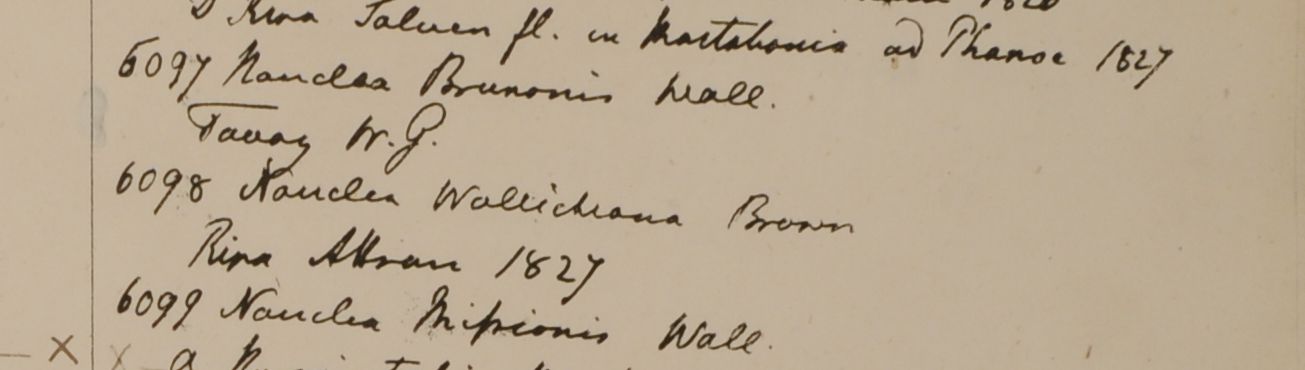 D Ripa Saluen fl. in Martabania ad Phanoe 1827
6097 Nauclea Brunonis Wall.
Tavoy W.G.
6098 Nauclea Wallichiana Brown
Ripa Attran 1827
6099 Nauclea Missionis Wall.